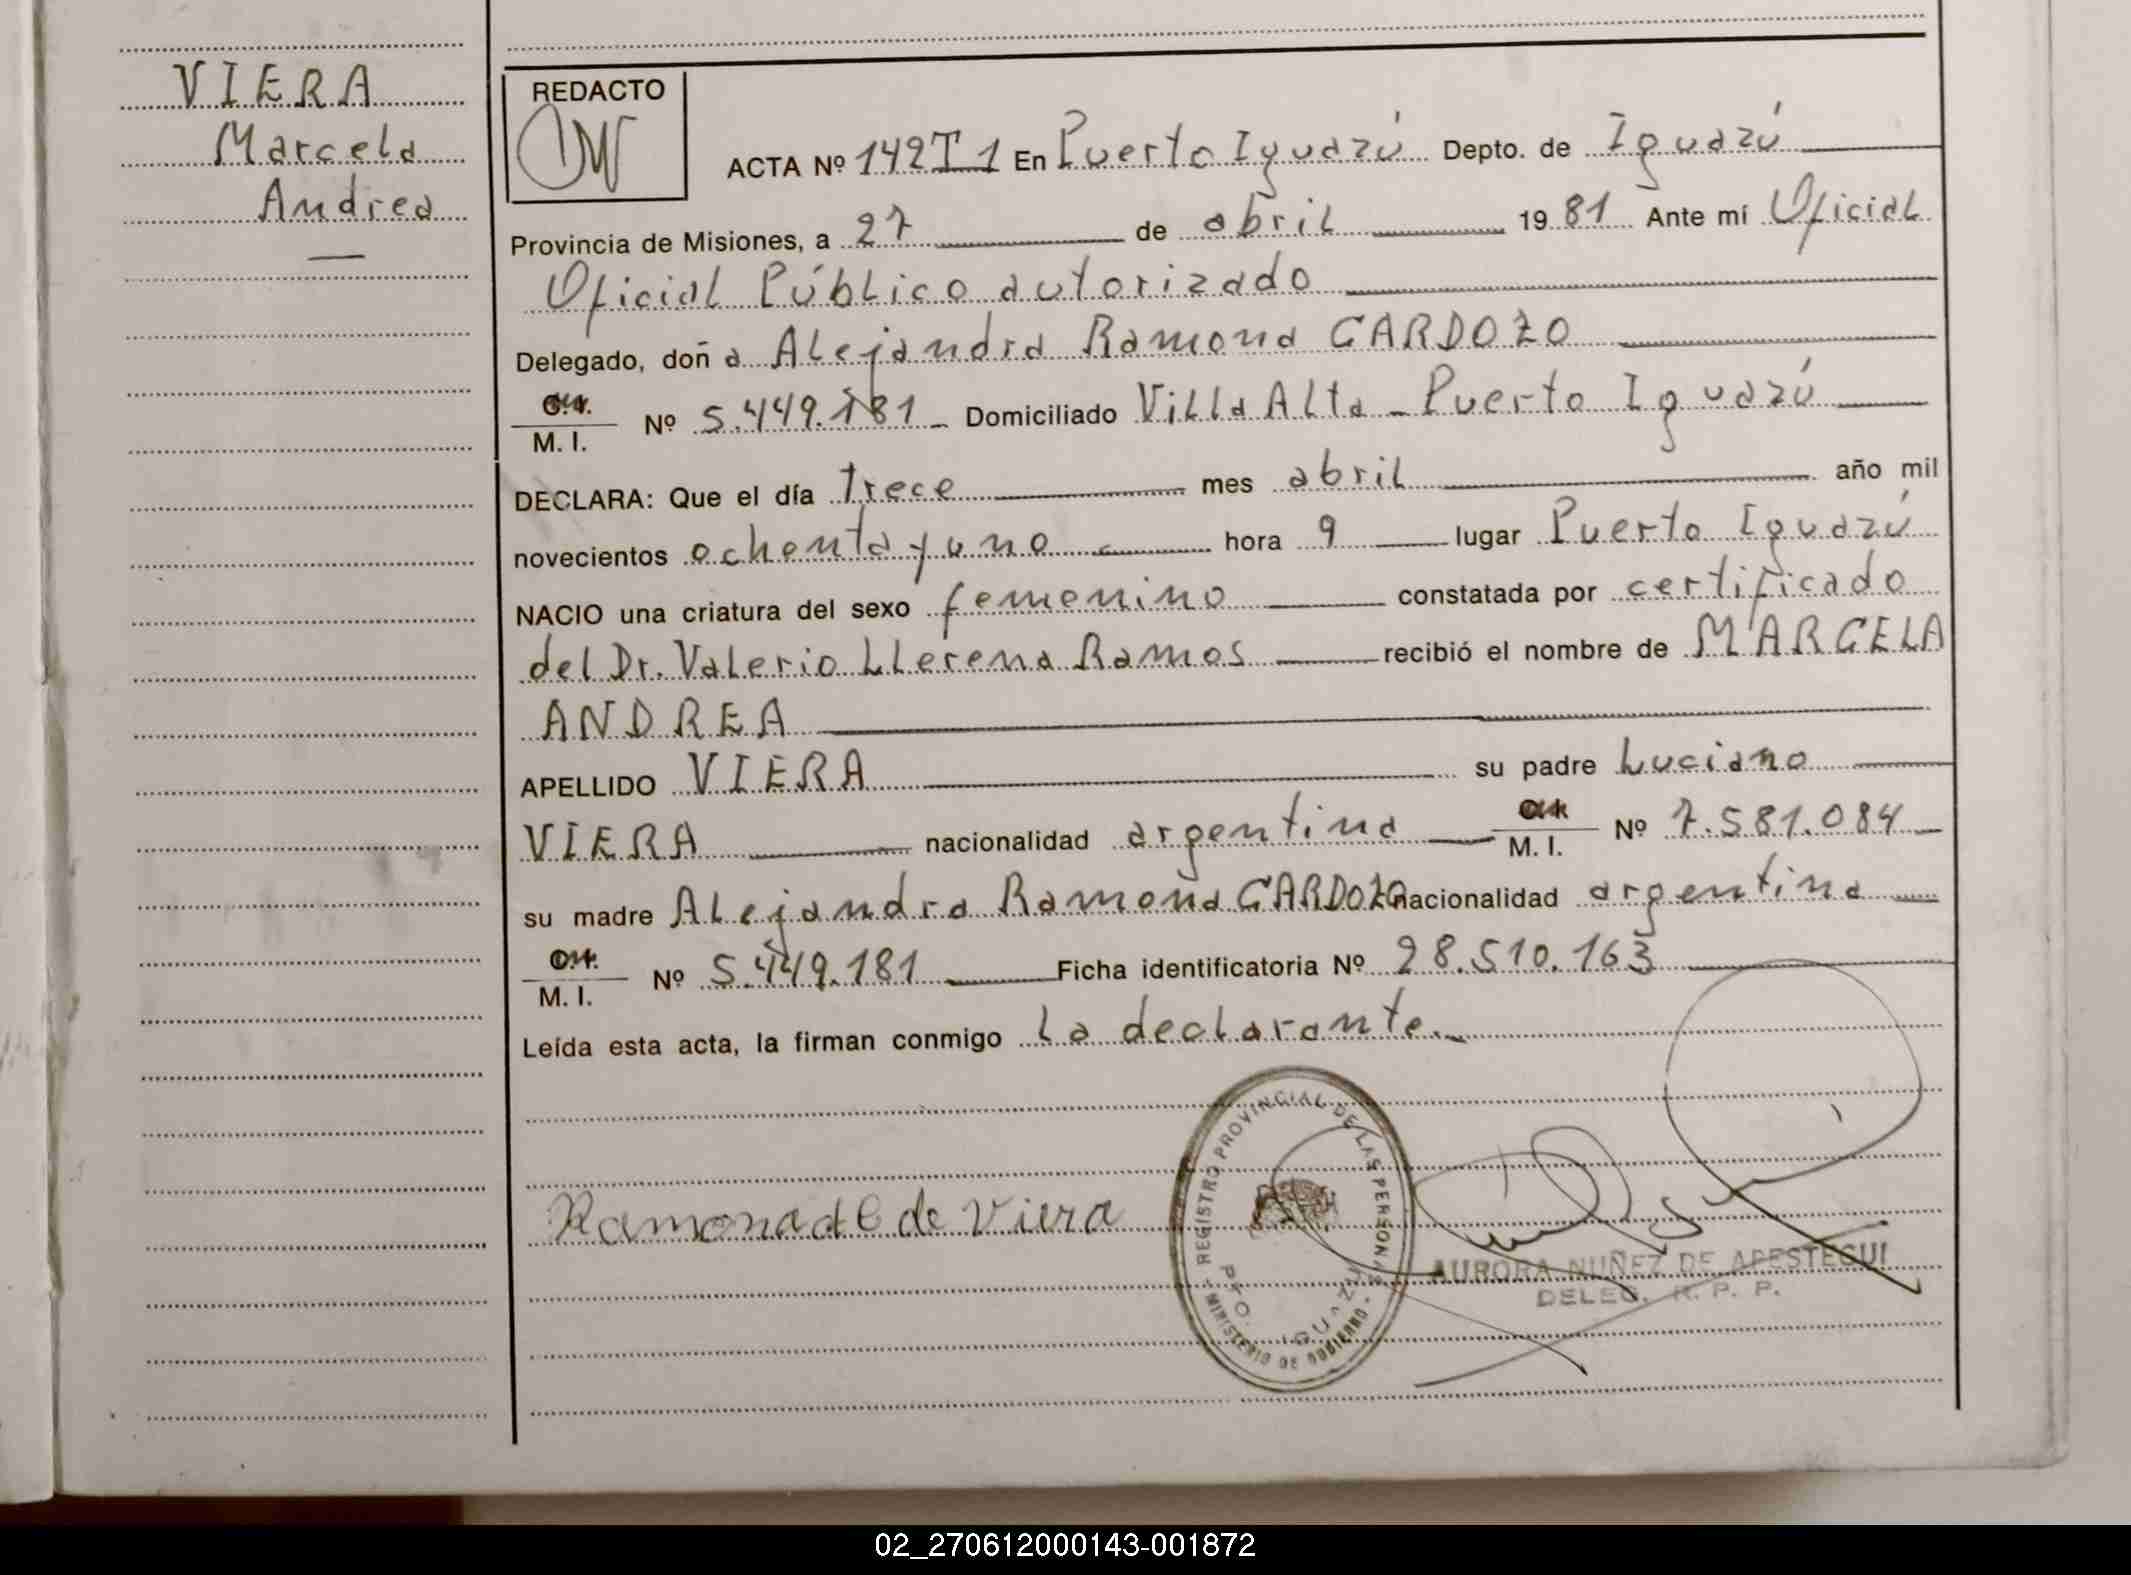 VIERA
Marcela
Andrea
—
REDACTO
ACTA Nº 142 T 1 En Puerto Iguazú Depto. de Iguazú
Provincia de Misiones, a 27 de abril 1981 Ante mí Oficial
Oficial Público autorizado
Delegado, doña Alejandra Ramona CARDOZO
M. I. Nº 5.449.181 Domiciliado Villa Alta - Puerto Iguazú
DECLARA: Que el día trece mes abril año mil
novecientos ochenta y uno hora 9 lugar Puerto Iguazú
NACIO una criatura del sexo femenino constatada por certificado
del Dr. Valerio Llerena Ramos recibió el nombre de MARCELA
ANDREA
APELLIDO VIERA su padre Luciano
VIERA nacionalidad argentina M. I. Nº 7.581.084
su madre Alejandra Ramona CARDOZO nacionalidad argentina
M. I. Nº 5.449.181 Ficha identificatoria Nº 28.510.163
Leída esta acta, la firman conmigo la declarante.
Ramona de Viera
REGISTRO PROVINCIAL DE LAS PERSONAS
PTO. IGUAZU
MINISTERIO DE GOBIERNO
AURORA NUÑEZ DE APESTEGUI
DELEG. R. P. P.
02_270612000143-001872